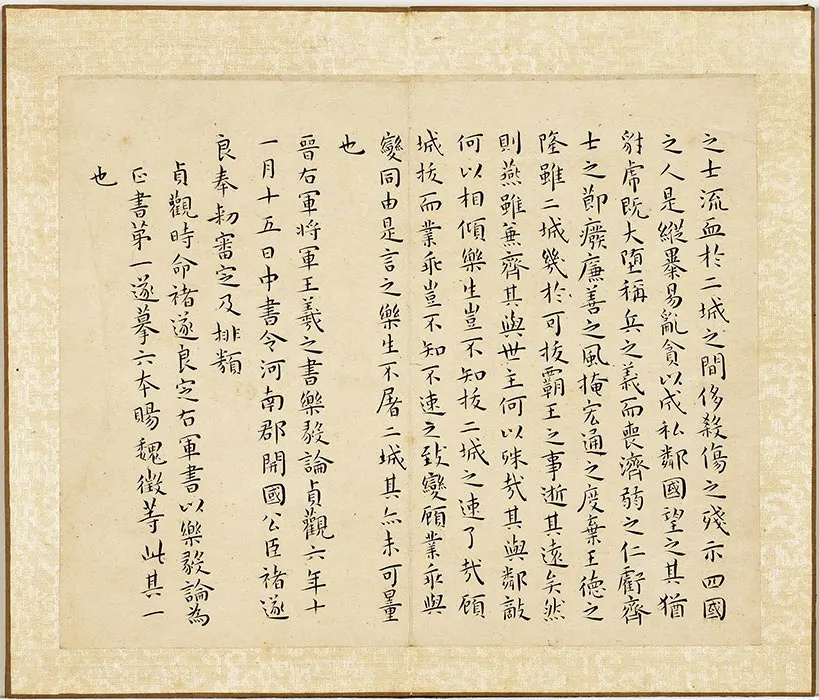 之士流血於二城之間侈殺傷之殘示四國
之人是縱暴易亂貪以成私鄰國望之其猶
豺虎既大墮稱兵之義而喪濟弱之仁虧齊
士之節癈廉善之風掩宏通之度棄王德之
隆雖二城幾於可拔霸王之事逝其遠矣然
則燕雖兼齊其與世主何以殊哉其與鄰敵
何以相傾樂生豈不知拔二城之速了哉顧
城拔而業乖豈不知不速之致變顧業乖與
變同由是言之樂生不屠二城其亦未可量
也
晉右軍將軍王羲之書樂毅論貞觀六年十
一月十五日中書令河南郡開國公臣褚遂
良奉敕審定及排類
貞觀時命褚遂良定右軍書以樂毅論為
正書第一遂摹六本賜魏徵等此其一
也